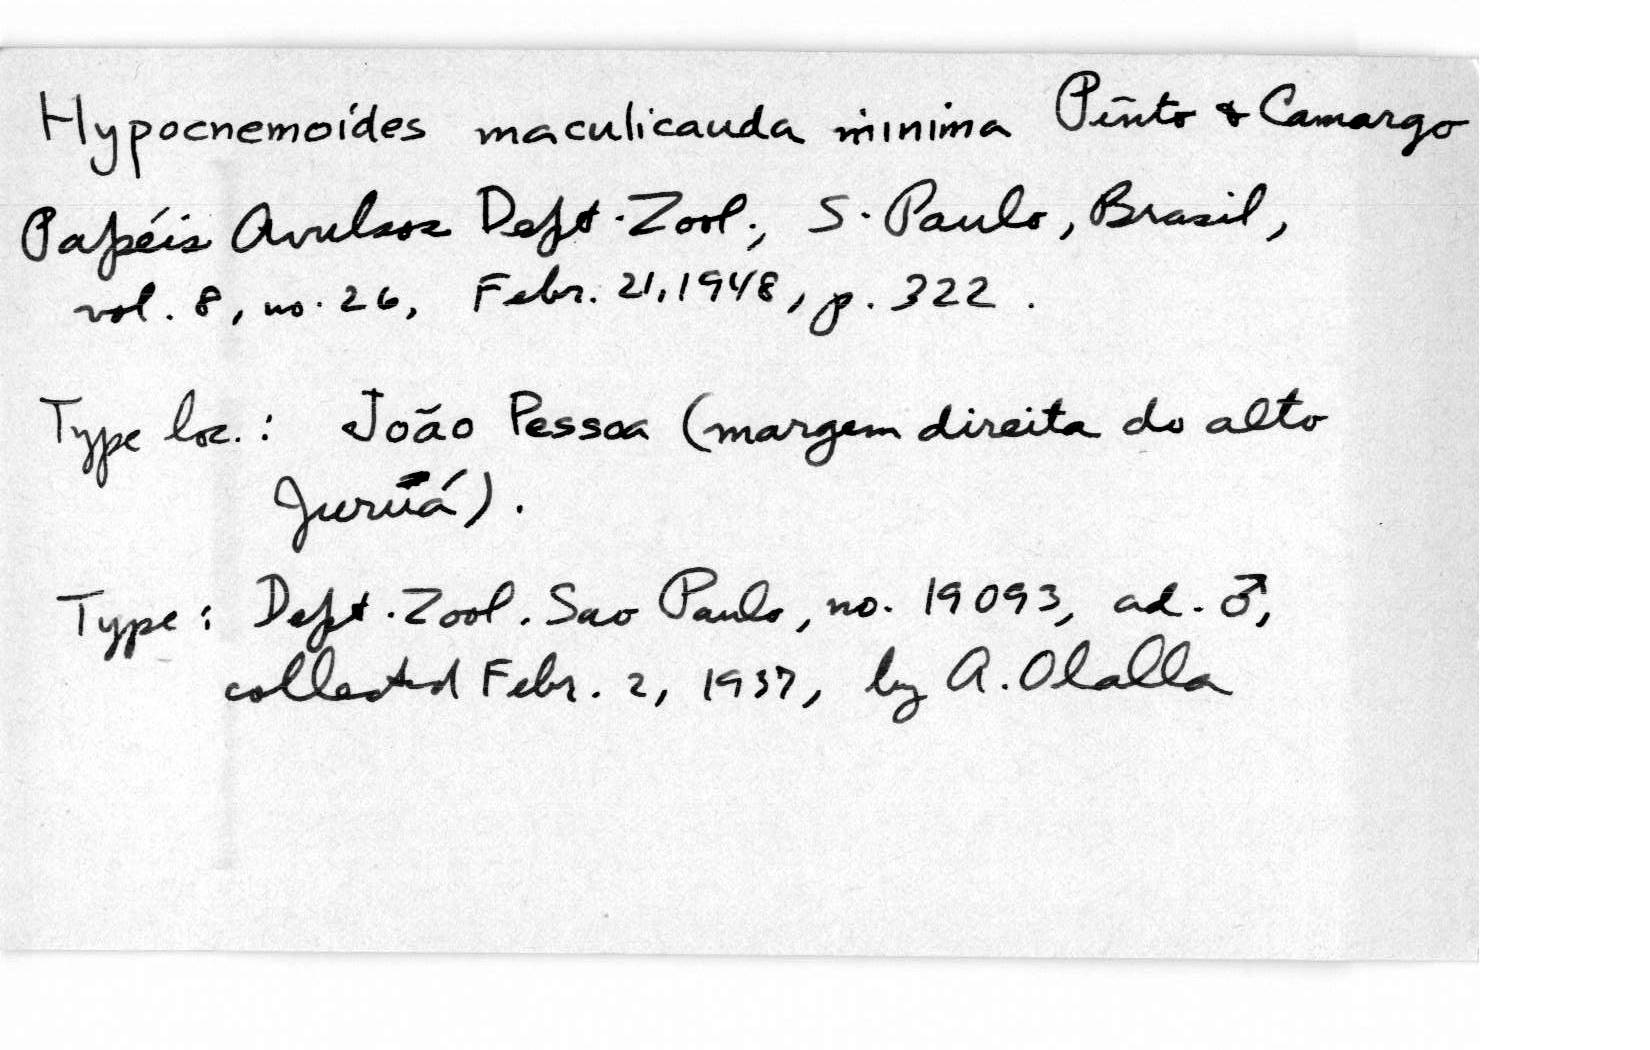 Hypocnemoides maculicauda minima Pinto & Camargo
Papéis Avulsos Dept. Zool., S. Paulo, Brasil,
vol. 8, no. 26, Febr. 21, 1948, p. 322.
Type loc.: João Pessoa (margem direita do alto
Juruá).
Type: Dept. Zool. Sao Paulo, no. 19093, ad. ♂,
collected Febr. 2, 1937, by A. Olalla